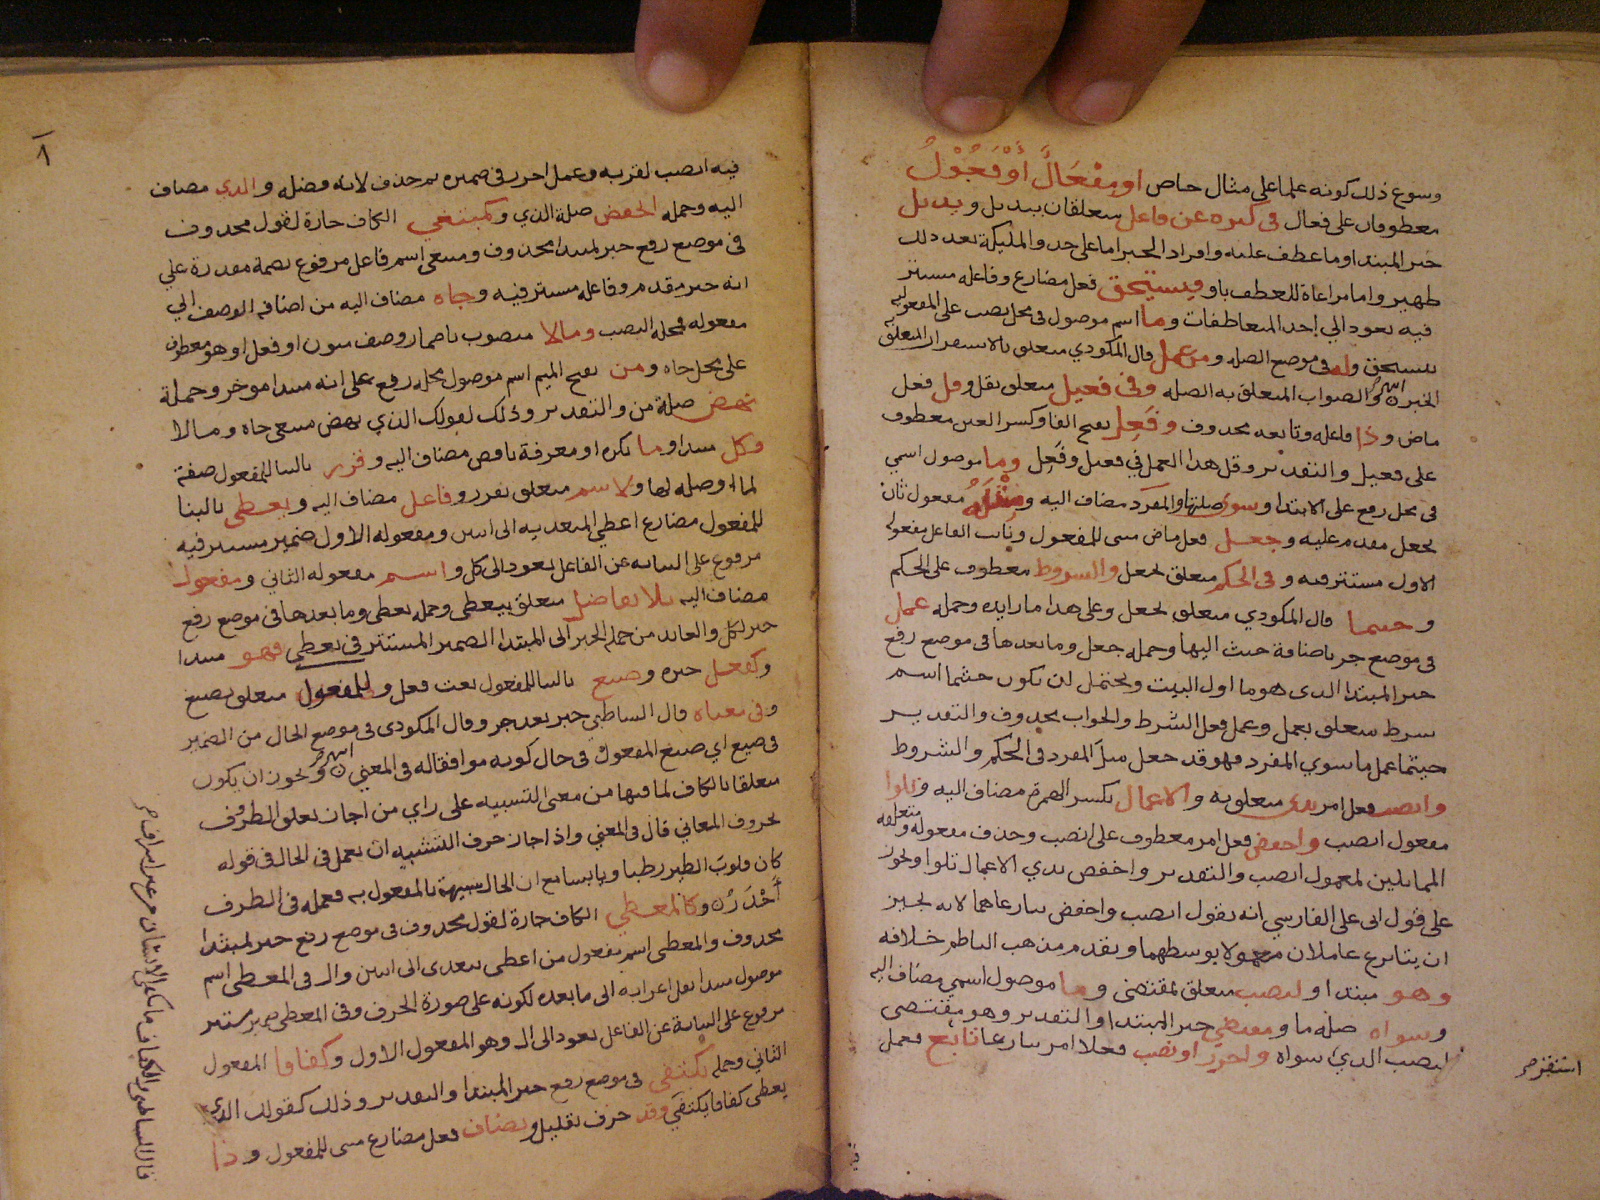 وسوغ ذلك كونه علما على مثال خاص او مِفْعَالٌ أَوْ فَعُوْلُ
معطوفان على فعال في كثره عن فاعل متعلقان ببديل و بديل
خبر المبتدا وما عطف عليه وافراد الخبر اما على حد والمليكة بعد ذلك
ظهير واما مراعاة للعطف باو و فيستحق فعل مضارع وفاعله مستتر
فيه يعود الي احد المتعاطفات و ما اسم موصول في محل نصب على المفعوليه
بيستحق و له في موضع الصله و من عمل قال المكودي متعلق بالاستقرار المتعلق
الخبر والصواب المتعلق به الصله وفى فعيل متعلق بقل و قل فعل
ماض و ذا فاعله وتابعه محذوف و فَعِلِ بفتح الفا وكسر العين معطوف
على فعيل والتقدير وقل هذا العمل في فعيل وفَعِل وما موصول اسمي
في محل رفع على الابتدا و سوى صلتها والمفرد مضاف اليه و مثله مفعول ثان
لجعل مقدم عليه و جعل فعل ماض مبني للمفعول ونائب الفاعل مفعوله
الاول مستتر فيه و في الحكم متعلق بجعل والشروط معطوف على الحكم
و حيثما قال المكودي متعلق بجعل وعلى هذا ما زايده وجمله عمل
في موضع جر باضافة حيث اليها وجمله جعل وما بعدها في موضع رفع
خبر المبتدا الذي هو ما اول البيت ويحتمل ان تكون حيثما اسم
شرط متعلق بعمل وعمل فعل الشرط والجواب محذوف والتقدير
حيثما عمل ما سوي المفرد فهو قد جعل مثل المفرد في الحكم والشروط
وانصب فعل امر بذي متعلق به و الاعمال بكسر الهمزة مضاف اليه و تلوا
مفعول انصب واخفض فعل امر معطوف على انصب وحذف مفعوله ومتعلقه
المماثلين لمعمول انصب والتقدير واخفض بذي الاعمال تلوا ويجوز
على قول ابي على الفارسي انه يقول انصب واخفض تنازعاهما لانه يجيز
ان يتنازع عاملان معمولا بوسطهما وتقدم مذهب الناظم خلافه
وهو مبتدا و لنصب متعلق بمقتضي و ما موصول اسمي مضاف اليه
و سواه صله ما و مقتضي خبر المبتدا والتقدير وهو مقتضي
لنصب الذي سواه و اجرر او نصب فعلا امر تنازعا تابع فعمل
فيه انصب لقربه وعمل اجرر في ضميره ثم حذف لانه فضله و الذي مضاف
اليه وجمله انخفض صلة الذي و كمبتغي الكاف جارة لقول محذوف
في موضع رفع خبر لمبتدا محذوف ومبتغي اسم فاعل مرفوع بضمة مقدرة علي
انه خبر مقدم وفاعله مستتر فيه و جاه مضاف اليه من اضافه الوصف الي
مفعوله فمحله النصب و مالا منصوب باضمار وصف منون او فعل او هو معطوف
على محل جاه و من بفتح الميم اسم موصول محله رفع على انه مبتدا موخر وجملة
نهض صلة من والتقدير وذلك لقولك الذي نهض مبتغي جاه ومالا
وكل مبتدا و ما نكره او معرفة ناقص مضاف اليه و قرر بالبنا للمفعول صفة
لما او صله لها و لاسم متعلق بقرر و فاعل مضاف اليه و يعطى بالبنا
للمفعول مضارع اعطي المتعديه الى اثنين ومفعوله الاول ضمير مستتر فيه
مرفوع على النيابه عن الفاعل يعود الى كل و اسم مفعوله الثاني و مفعول
مضاف اليه بلا تفاضل متعلق بيعطى وجمله يعطى وما بعدها في موضع رفع
خبر لكل والعائد من جمله الخبر الى المبتدا الضمير المستتر في يعطي فهو مبتدا
و كفعل خبره و صيغ بالبنا للمفعول نعت فعل و للمفعول متعلق بصيغ
و في معناه قال الشاطبي خبر بعد خبر وقال المكودي في موضع الحال من الضمير
في صيغ اي صيغ المفعول في حال كونه موافقا له في المعني انتهى ويجوز ان يكون
متعلقا بالكاف لما فيها من معنى التشبيه على راي من اجاز تعلق الظرف
بحروف المعاني قال في المغني واذا جاز حرف التشبيه ان يعمل في الحال في قوله
كان قلوب الطير رطبا ويابسا مع ان الحال شبيهة بالمفعول به فعمله في الظرف
أَجْدَرُ و كالمعطي الكاف جارة لقول محذوف في موضع رفع خبر لمبتدا
محذوف والمعطى اسم مفعول من اعطى يتعدى الى اثنين وال في المعطى اسم
موصول مبتدا نقل اعرابه الى ما بعده لكونه على صورة الحرف وفي المعطى ضمير مستتر
مرفوع على النيابة عن الفاعل يعود الى ال وهو المفعول الاول و كفافا المفعول
الثاني وجمله يكتفي في موضع رفع خبر المبتدا والتقدير وذلك كقولك الذي
يعطى كفافا يكتفي وقد حرف تقليل و يضاف فعل مضارع مبني للمفعول و ذا